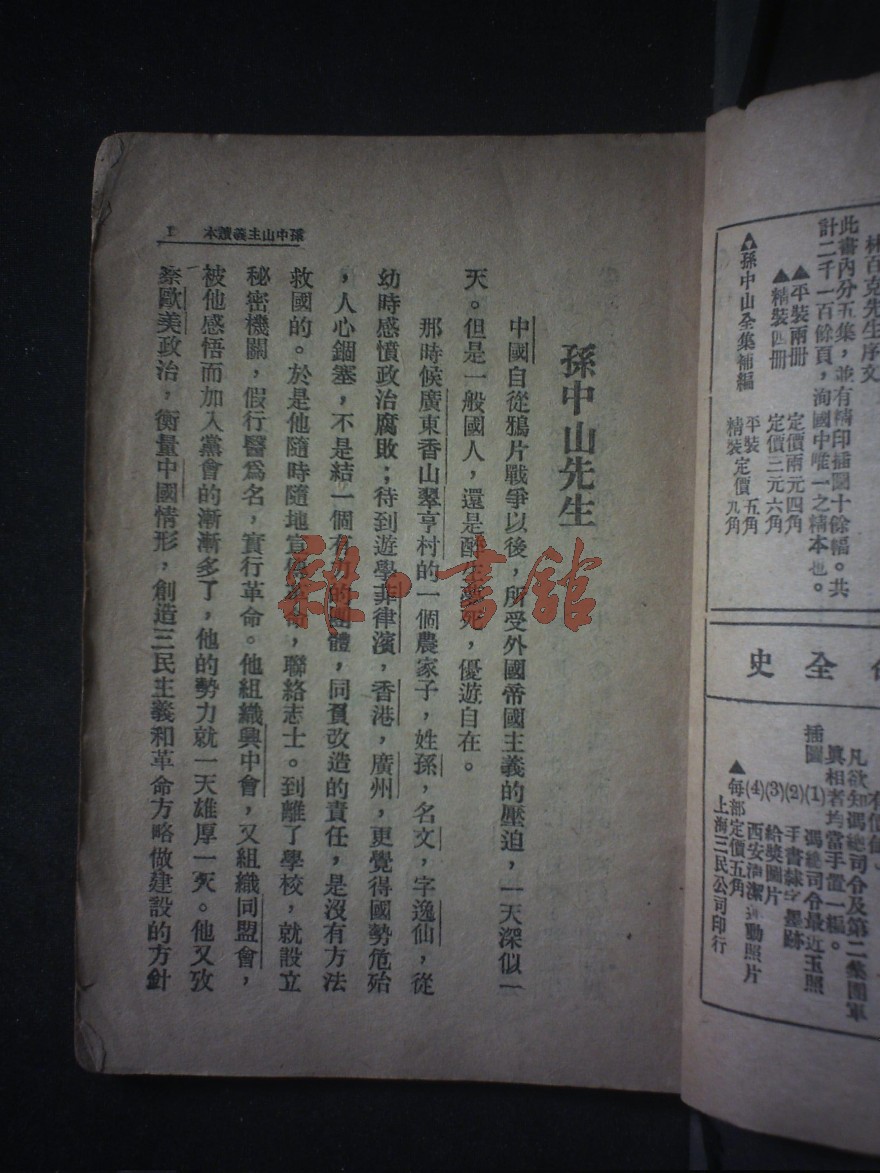 林百克先生序文
此書內分五集，並有精印插圖十餘幅。共
計二千一百餘頁，洵國中唯一之精本也。
▲平裝兩冊　定價兩元四角
▲精裝四冊　定價三元六角
▲孫中山全集補編　平裝五角
精裝定價九角
全史
凡欲知馮總司令及第二集團軍
真相者均當手置一編。
插圖 (1) 馮總司令最近玉照
(2) 手書隸字墨跡
(3) 給獎圖片
(4) 西安清潔運動照片
▲每部定價五角
上海三民公司印行
孫中山主義讀本　1
孫中山先生
中國自從鴉片戰爭以後，所受外國帝國主義的壓迫，一天深似一
天。但是一般國人，還是醉生夢死，優遊自在。
那時候廣東香山翠亨村的一個農家子，姓孫，名文，字逸仙，從
幼時感憤政治腐敗；待到遊學菲律濱，香港，廣州，更覺得國勢危殆
，人心錮塞，不是結一個有力的團體，同負改造的責任，是沒有方法
救國的。於是他隨時隨地宣傳革命，聯絡志士。到離了學校，就設立
秘密機關，假行醫爲名，實行革命。他組織興中會，又組織同盟會，
被他感悟而加入黨會的漸漸多了，他的勢力就一天雄厚一天。他又攷
察歐美政治，衡量中國情形，創造三民主義和革命方略做建設的方針
雜·書館